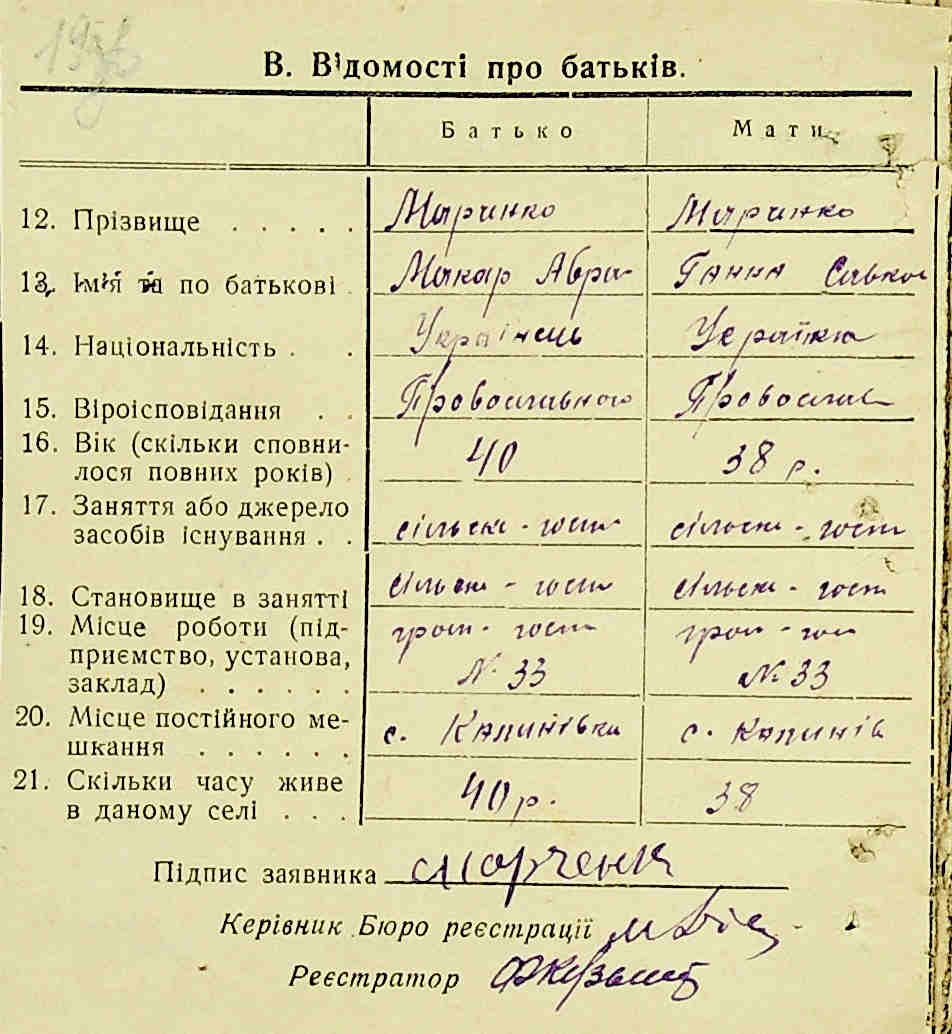 В. Відомості про батьків.
Батько Мати
12. Прізвище . . . . . Маринко Маринко
13. Імʼя та по батькові . Макар Абра- Ганна Савков
14. Національність . . Українець Українка
15. Віроісповідання . . Провославного Провослав
16. Вік (скільки сповни-
лося повних років) . 40 38 р.
17. Заняття або джерело
засобів існування . . сільськ - госп сільськ - госп
18. Становище в занятті сільськ - госп сільськ - госп
19. Місце роботи (під-
приємство, установа,
заклад) . . . . . . № 33 № 33
20. Місце постійного ме-
шкання . . . . . . с. Калинівка с. Калинів
21. Скільки часу живе
в даному селі . . . 40 р. 38
Підпис заявника
Керівник Бюро реєстрації
Реєстратор